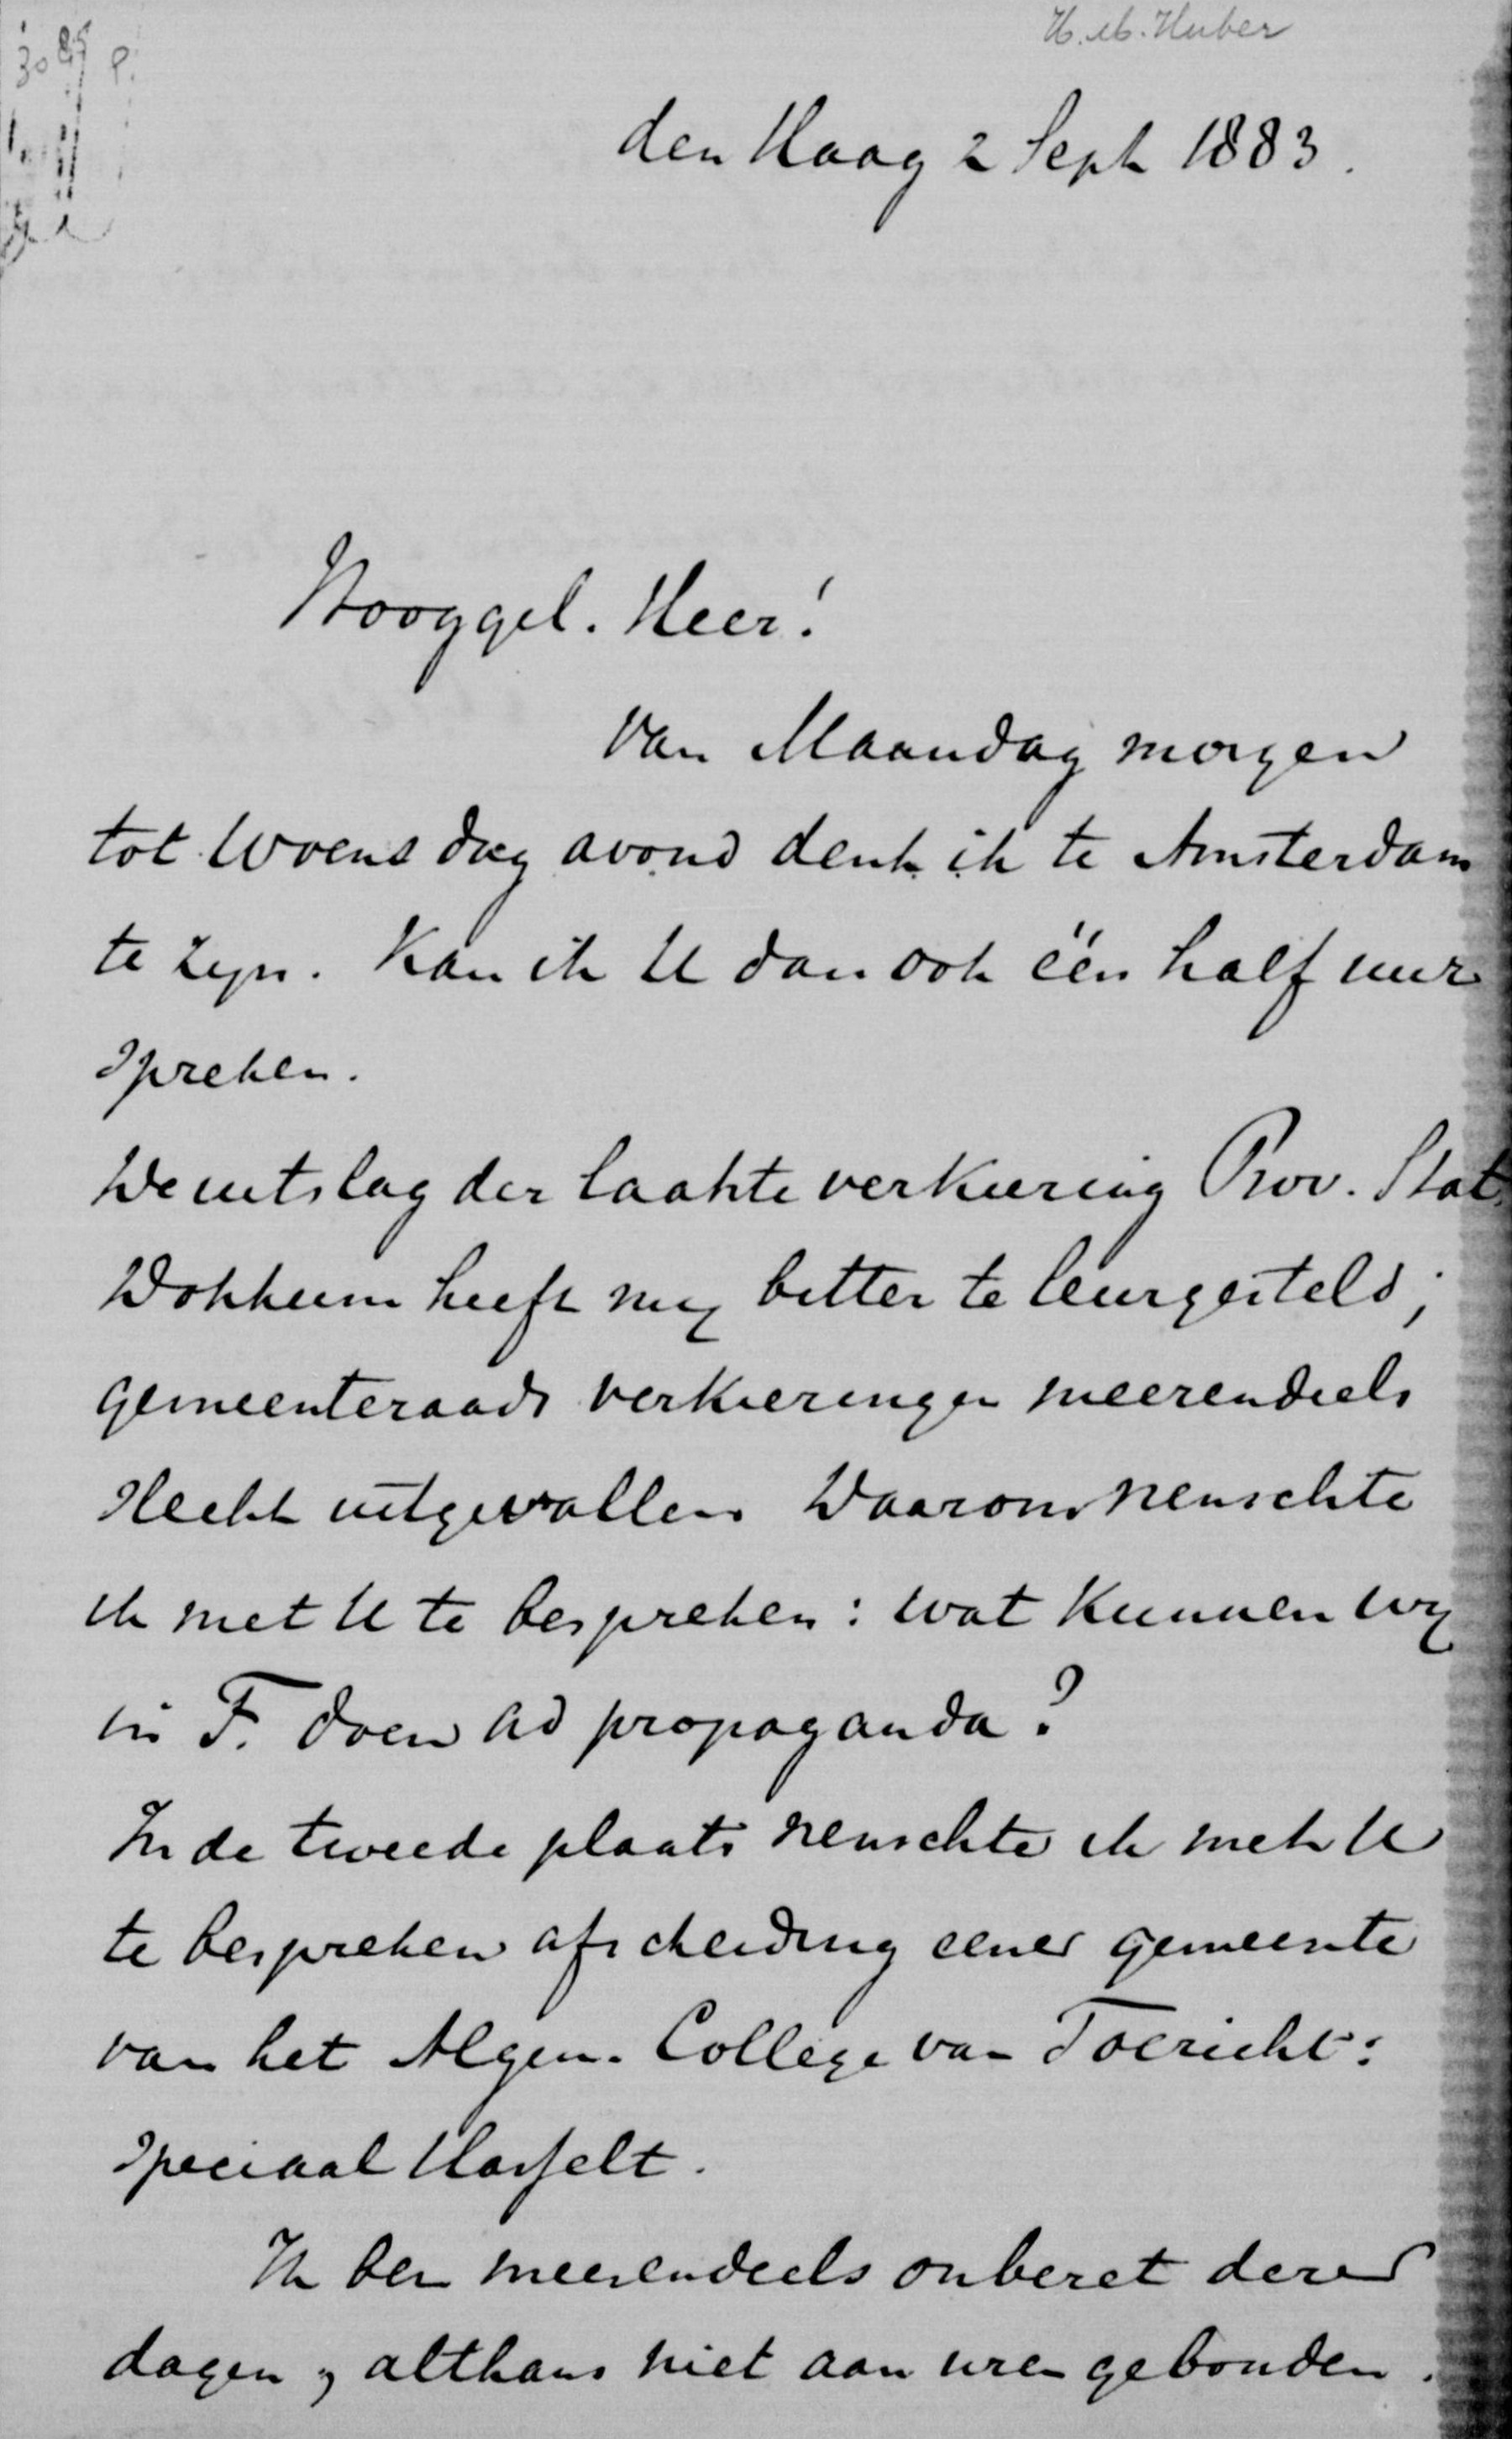 H. M. Huber
den Haag 2 Sept 1883.
Hooggel. Heer!
Van Maandag morgen
tot Woensdag avond denk ik te Amsterdam
te zyn. Kan ik U dan ook één half uur
spreken.
De uitslag der laatste verkiezing Prov. Stat.
Dokkum heeft my bitter te leurgesteld;
gemeenteraads verkiezingen meerendeels
slecht uitgevallen Daarom wenschte
ik met U te bespreken: wat kunnen wy
in F. doen ad propaganda?
In de tweede plaats wenschte ik met U
te bespreken afscheiding eener gemeente
van het Algem. College van Toezicht:
speciaal Hasselt.
Ik ben meerendeels onbezet dezer
dagen, althans niet aan uren gebonden.